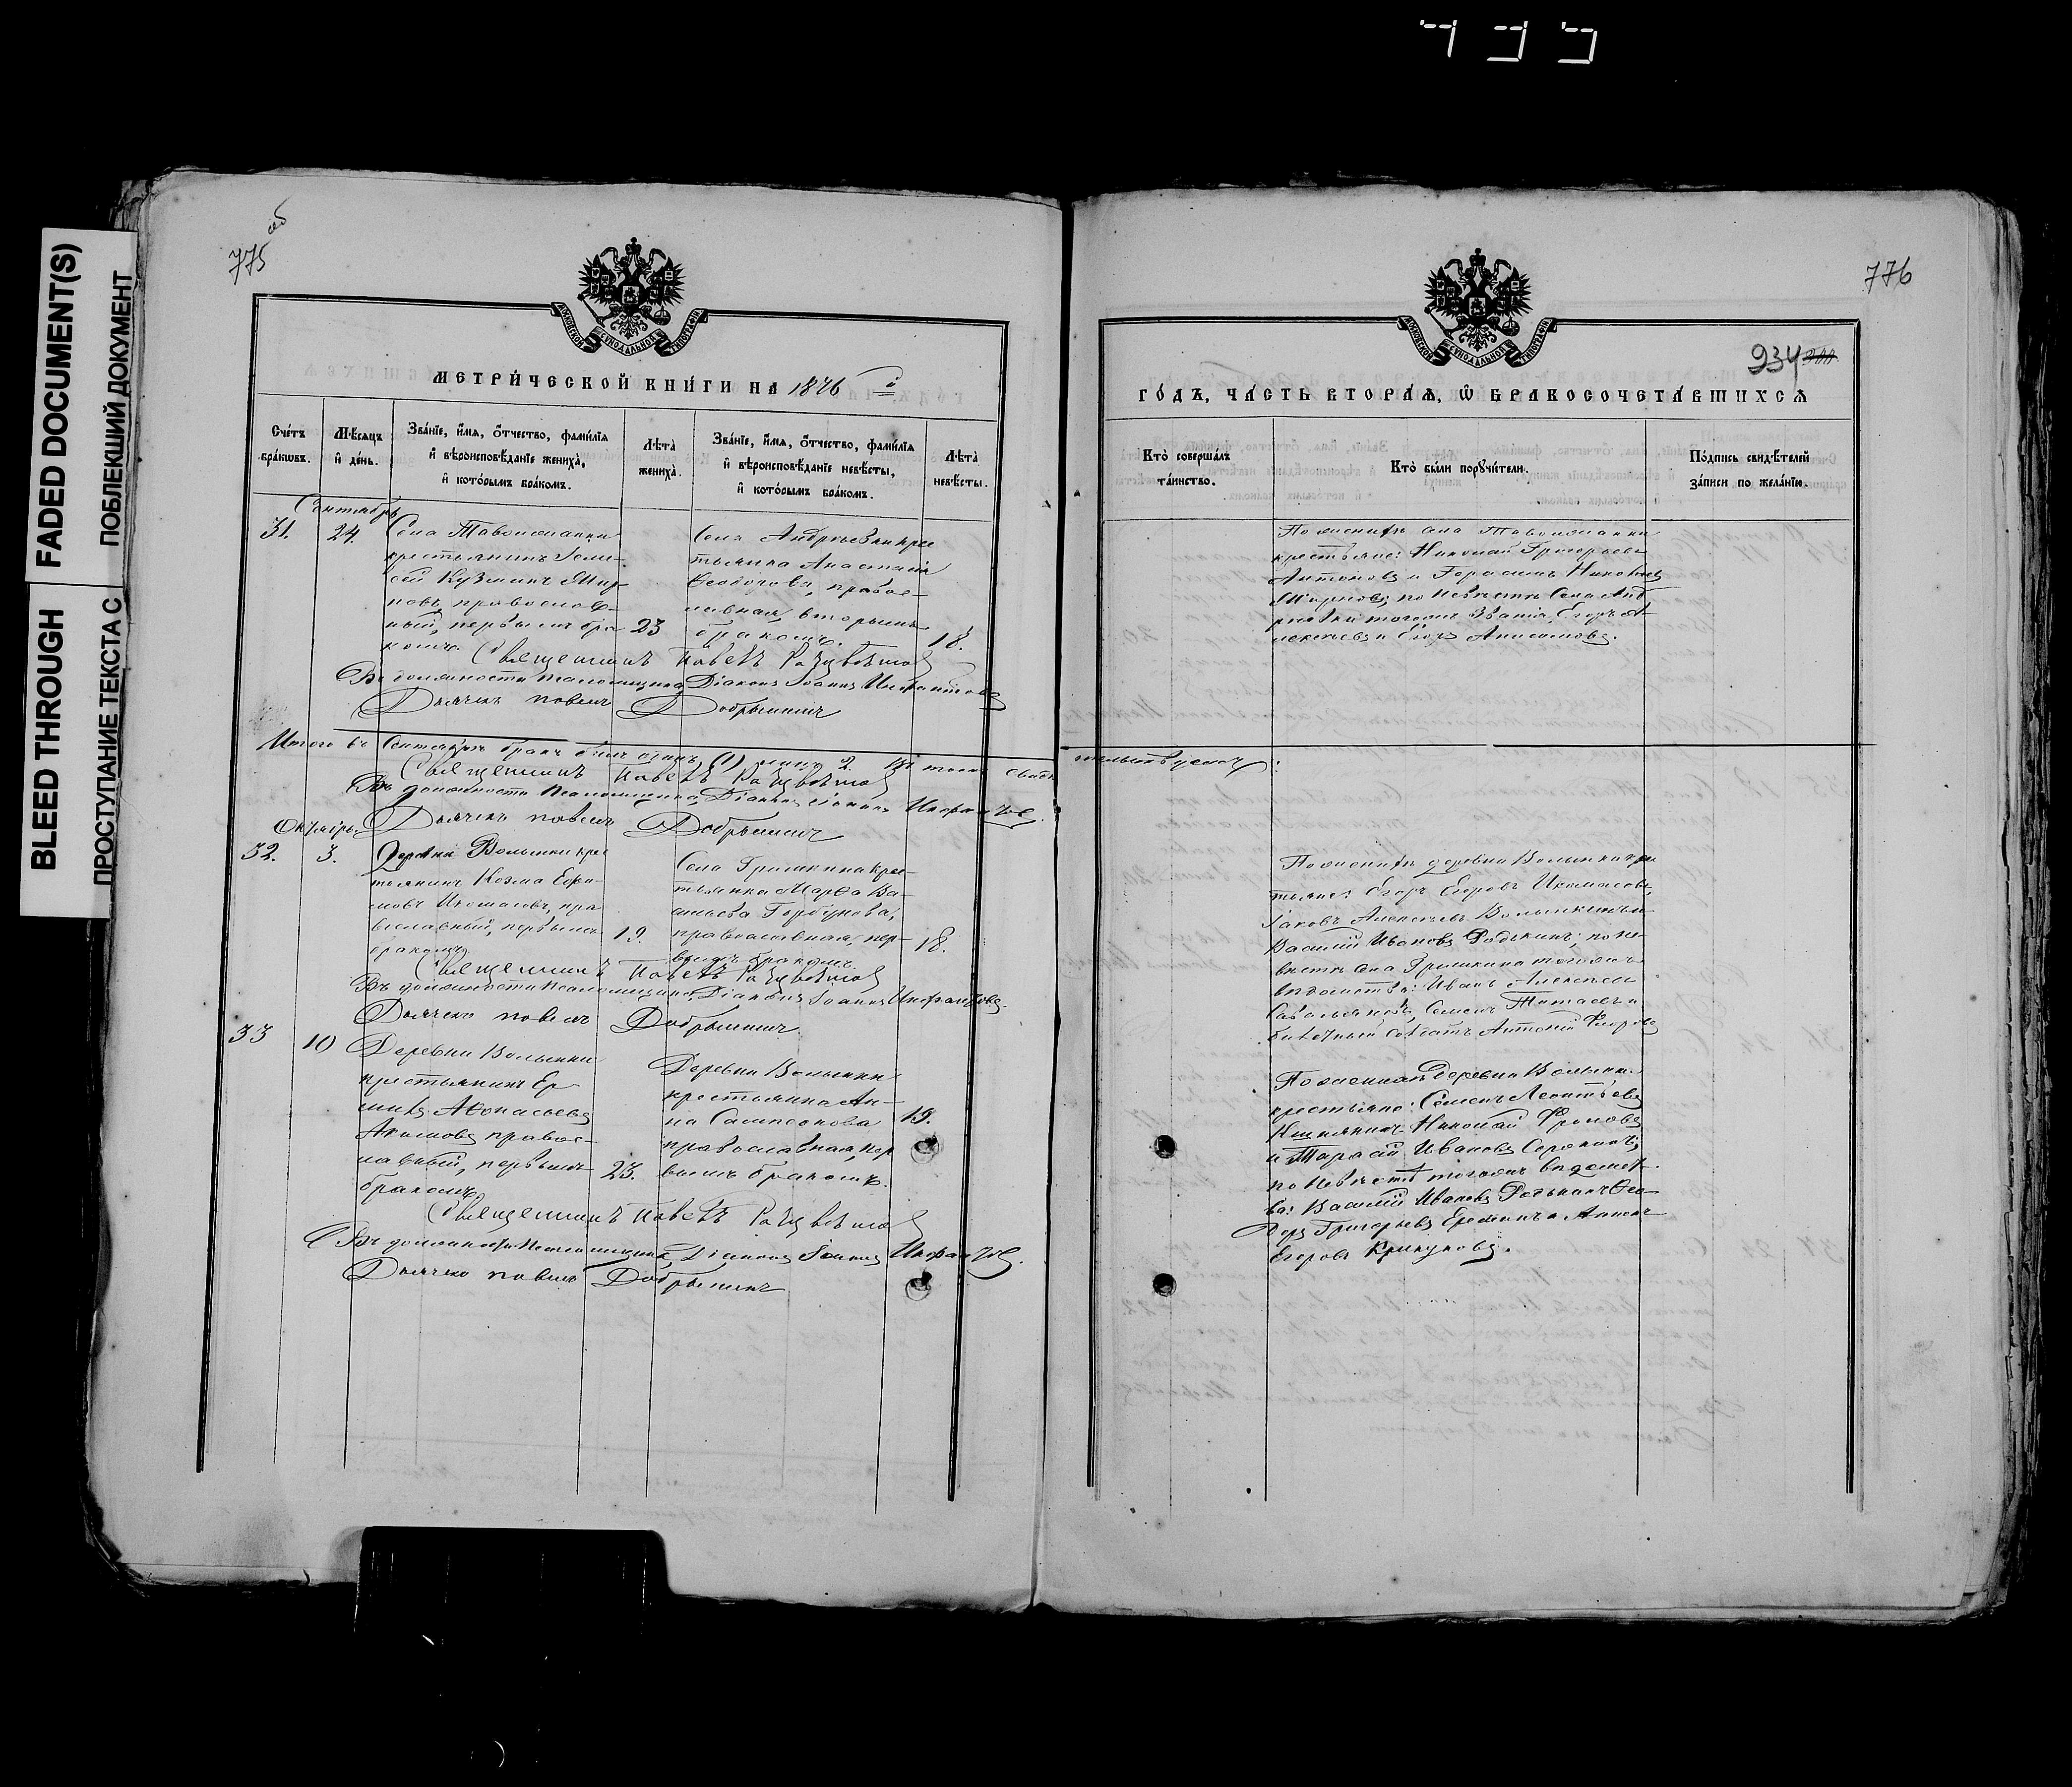 BLEED THROUGH FADED DOCUMENT(S)
ПРОСТУПАНИЕ ТЕКСТА С ПОБЛЕКШИЙ ДОКУМЕНТ
775 об
776
934
МОСКОВСКОЙ СѴНОДАЛЬНОЙ ТИПОГРАФІИ
МОСКОВСКОЙ СѴНОДАЛЬНОЙ ТИПОГРАФІИ
МЕТРИ́ЧЕСКОЙ КНИ́ГИ НА 1876 й
Сче́тъ бра́кѡвъ.
Мѣ́сяцъ и҆ де́нь.
Зва́нїе, и҆́мѧ, ѻ҆́тчество, фамилїѧ
и҆ вѣроисповѣ́данїе жениха̀,
и҆ кото́рымъ бра́комъ.
Лѣта̀ жениха̀.
Зва́нїе, и҆́мѧ, ѻ҆́тчество, фамилїѧ
и҆ вѣроисповѣ́данїе невѣ́сты,
и҆ кото́рымъ бра́комъ.
Лѣта̀ невѣ́сты.
Сентябрь
31.
24.
Села
крестьянинъ
сей Кузминъ Мир-
новъ, православ-
ный, первымъ бра-
комъ.
23
Села Андреевки крес
тьянка Анастасія
Ѳеодорова, правос-
лавная, вторымъ
бракомъ.
18.
Священникъ Павелъ Разцвѣтов
Въ должности псаломщика Діаконъ Іоаннъ Инфантов
Дьячекъ Павелъ Добрынинъ
Итого въ Сентябрѣ бракъ былъ одинъ (1) лицъ 2. Въ томъ свидѣ
тельствуемъ:
Священникъ Павелъ Разцвѣтов
Въ должности псаломщика Діаконъ Іоаннъ Инфантов.
Дьячекъ Павелъ Добрынинъ
Октябрь
32.
3.
Деревни Волынки крес
тьянинъ Козма Ефи-
мовъ пра
вославный, первымъ
бракомъ
19.
Села Гришкина крес-
тьянка Марѳа Ва-
сильева Горбунова,
православная, пер-
вымъ бракомъ.
18.
Священникъ Павелъ Разцвѣтов
Въ должности псаломщика Діаконъ Іоаннъ Инфантовъ.
Дьячекъ Павелъ Добрынинъ
33
10
Деревни Волынки
крестьянинъ Ер
милъ Аѳонасьевъ
Акимовъ правос-
лавный, первымъ
бракомъ
23.
Деревни Волынки
крестьянка Ан-
на Сампсонова
православная, пер
вымъ бракомъ.
19.
Священникъ Павелъ Разцвѣтов
Въ должности псаломщика, Діаконъ Іоаннъ Инфантов.
Дьячекъ Павелъ Добрынинъ
ГО́ДЪ, ЧА́СТЬ ВТОРА́Ѧ, Ѿ БРАКОСОЧЕТА́ВШИХСѦ
Кто̀ соверша́лъ та́инство.
Кто̀ бы́ли порꙋчи́тели.
По́дпись свидѣ́телей за́писи по жела́нїю.
По женихѣ села
крестьяне: Николай Григорьевъ
Антоновъ и Герасимъ Николаевъ
Мирновъ; по невѣстѣ Села Анд
реевки тогожъ званія, Егоръ А-
лексѣевъ и Егоръ Анисимовъ.
По женихѣ деревни Волынки крес
тьяне: Егоръ Егоровъ
Іаковъ Алексѣевъ Волынкинъ и
Василій Ивановъ Родькинъ; по не-
вѣстѣ села Гришкина тогожъ
вѣдомства: Иванъ Алексѣевъ
Семенъ Титаевъ и
билетный солдатъ Антоній Фроловъ
По женихѣ Деревни Волынки
крестьяне: Семенъ Леонтьевъ
Николай Фроловъ
и Тарасій Ивановъ Сорокинъ;
по невѣстѣ тогожъ вѣдомст-
ва: Василій Ивановъ Родькинъ Ѳео-
доръ Григорьевъ Ереминъ и
Егоровъ Крикуновъ.